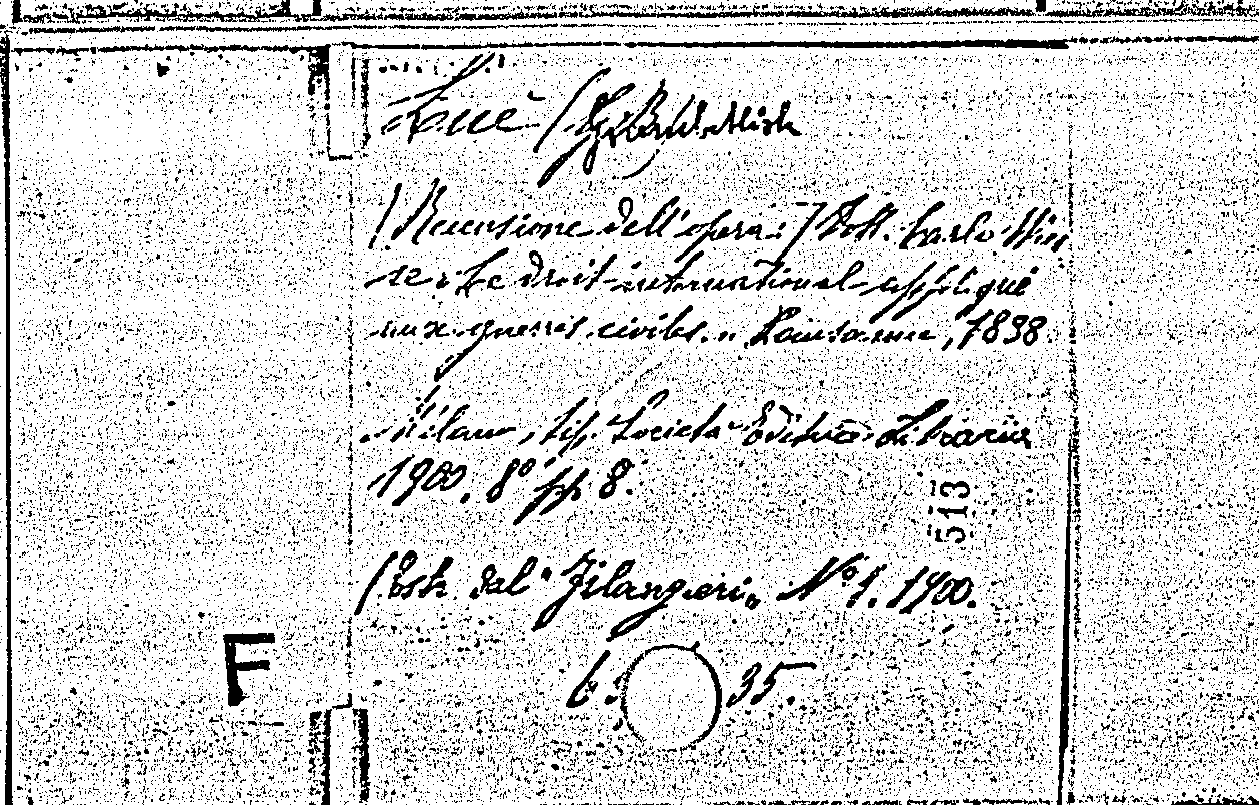 [Recensione dell'opera:] Dott. Carlo Wies
se „Le droit international appliqué
aux guerres civiles." Lausanne, 1898
Milano, tip. Società Editrice Libraria
1900. 8° pp 8.
513
(Estr. dal "Filangieri" N° 1. 1900.
F
35.